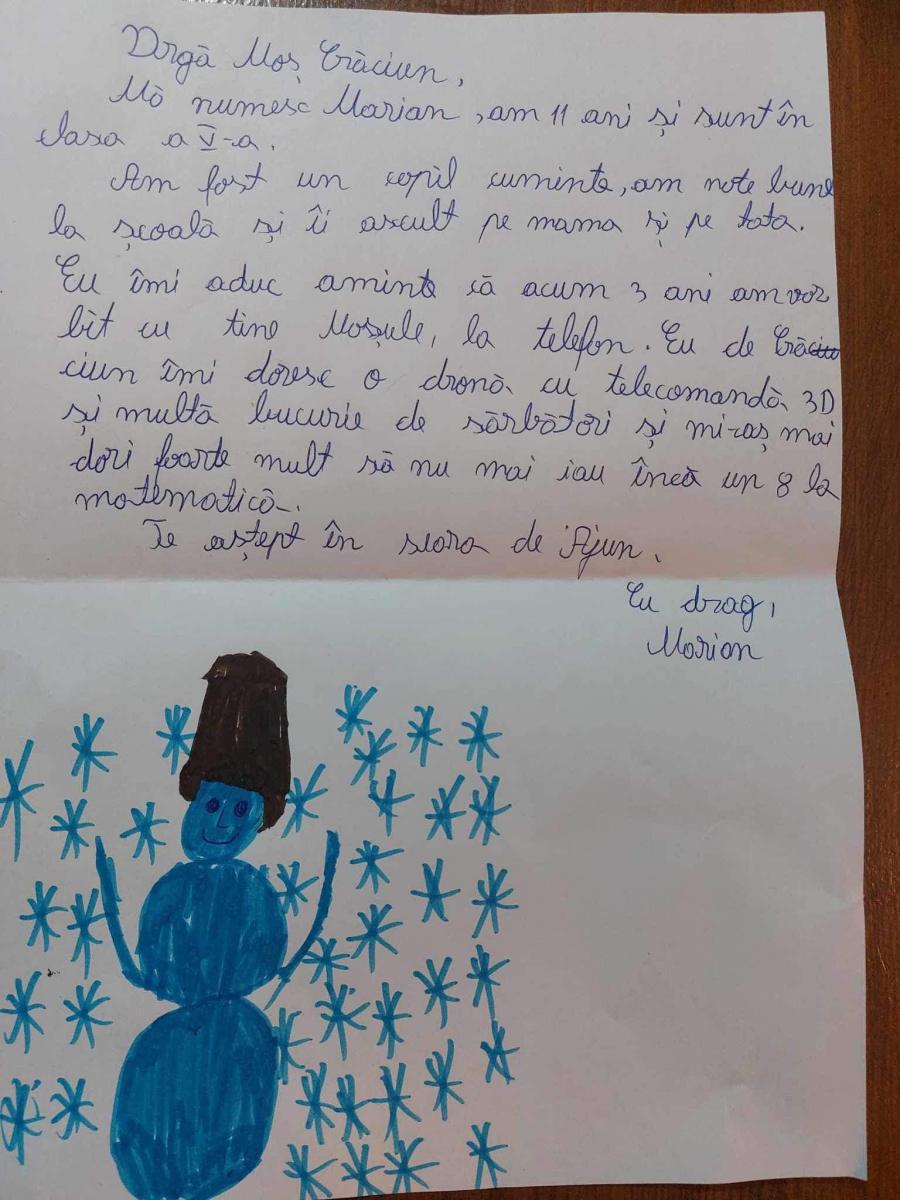 Drgă Moș Crăciun,
Mă numesc Marian, am 11 ani și sunt în
clasa a V-a.
Am fost un copil cuminte, am note bune
la școală și îi ascult pe mama și pe tata.
Eu îmi aduc aminte că acum 3 ani am vor
bit cu tine Moșule, la telefon. Eu de Crăciu
ciun îmi doresc o dronă cu telecomandă 3D
și multă bucurie de sărbători și mi-aș mai
dori foarte mult să nu mai iau încă un 8 la
matematică.
Te aștept în seara de Ajun.
Cu drag,
Marian